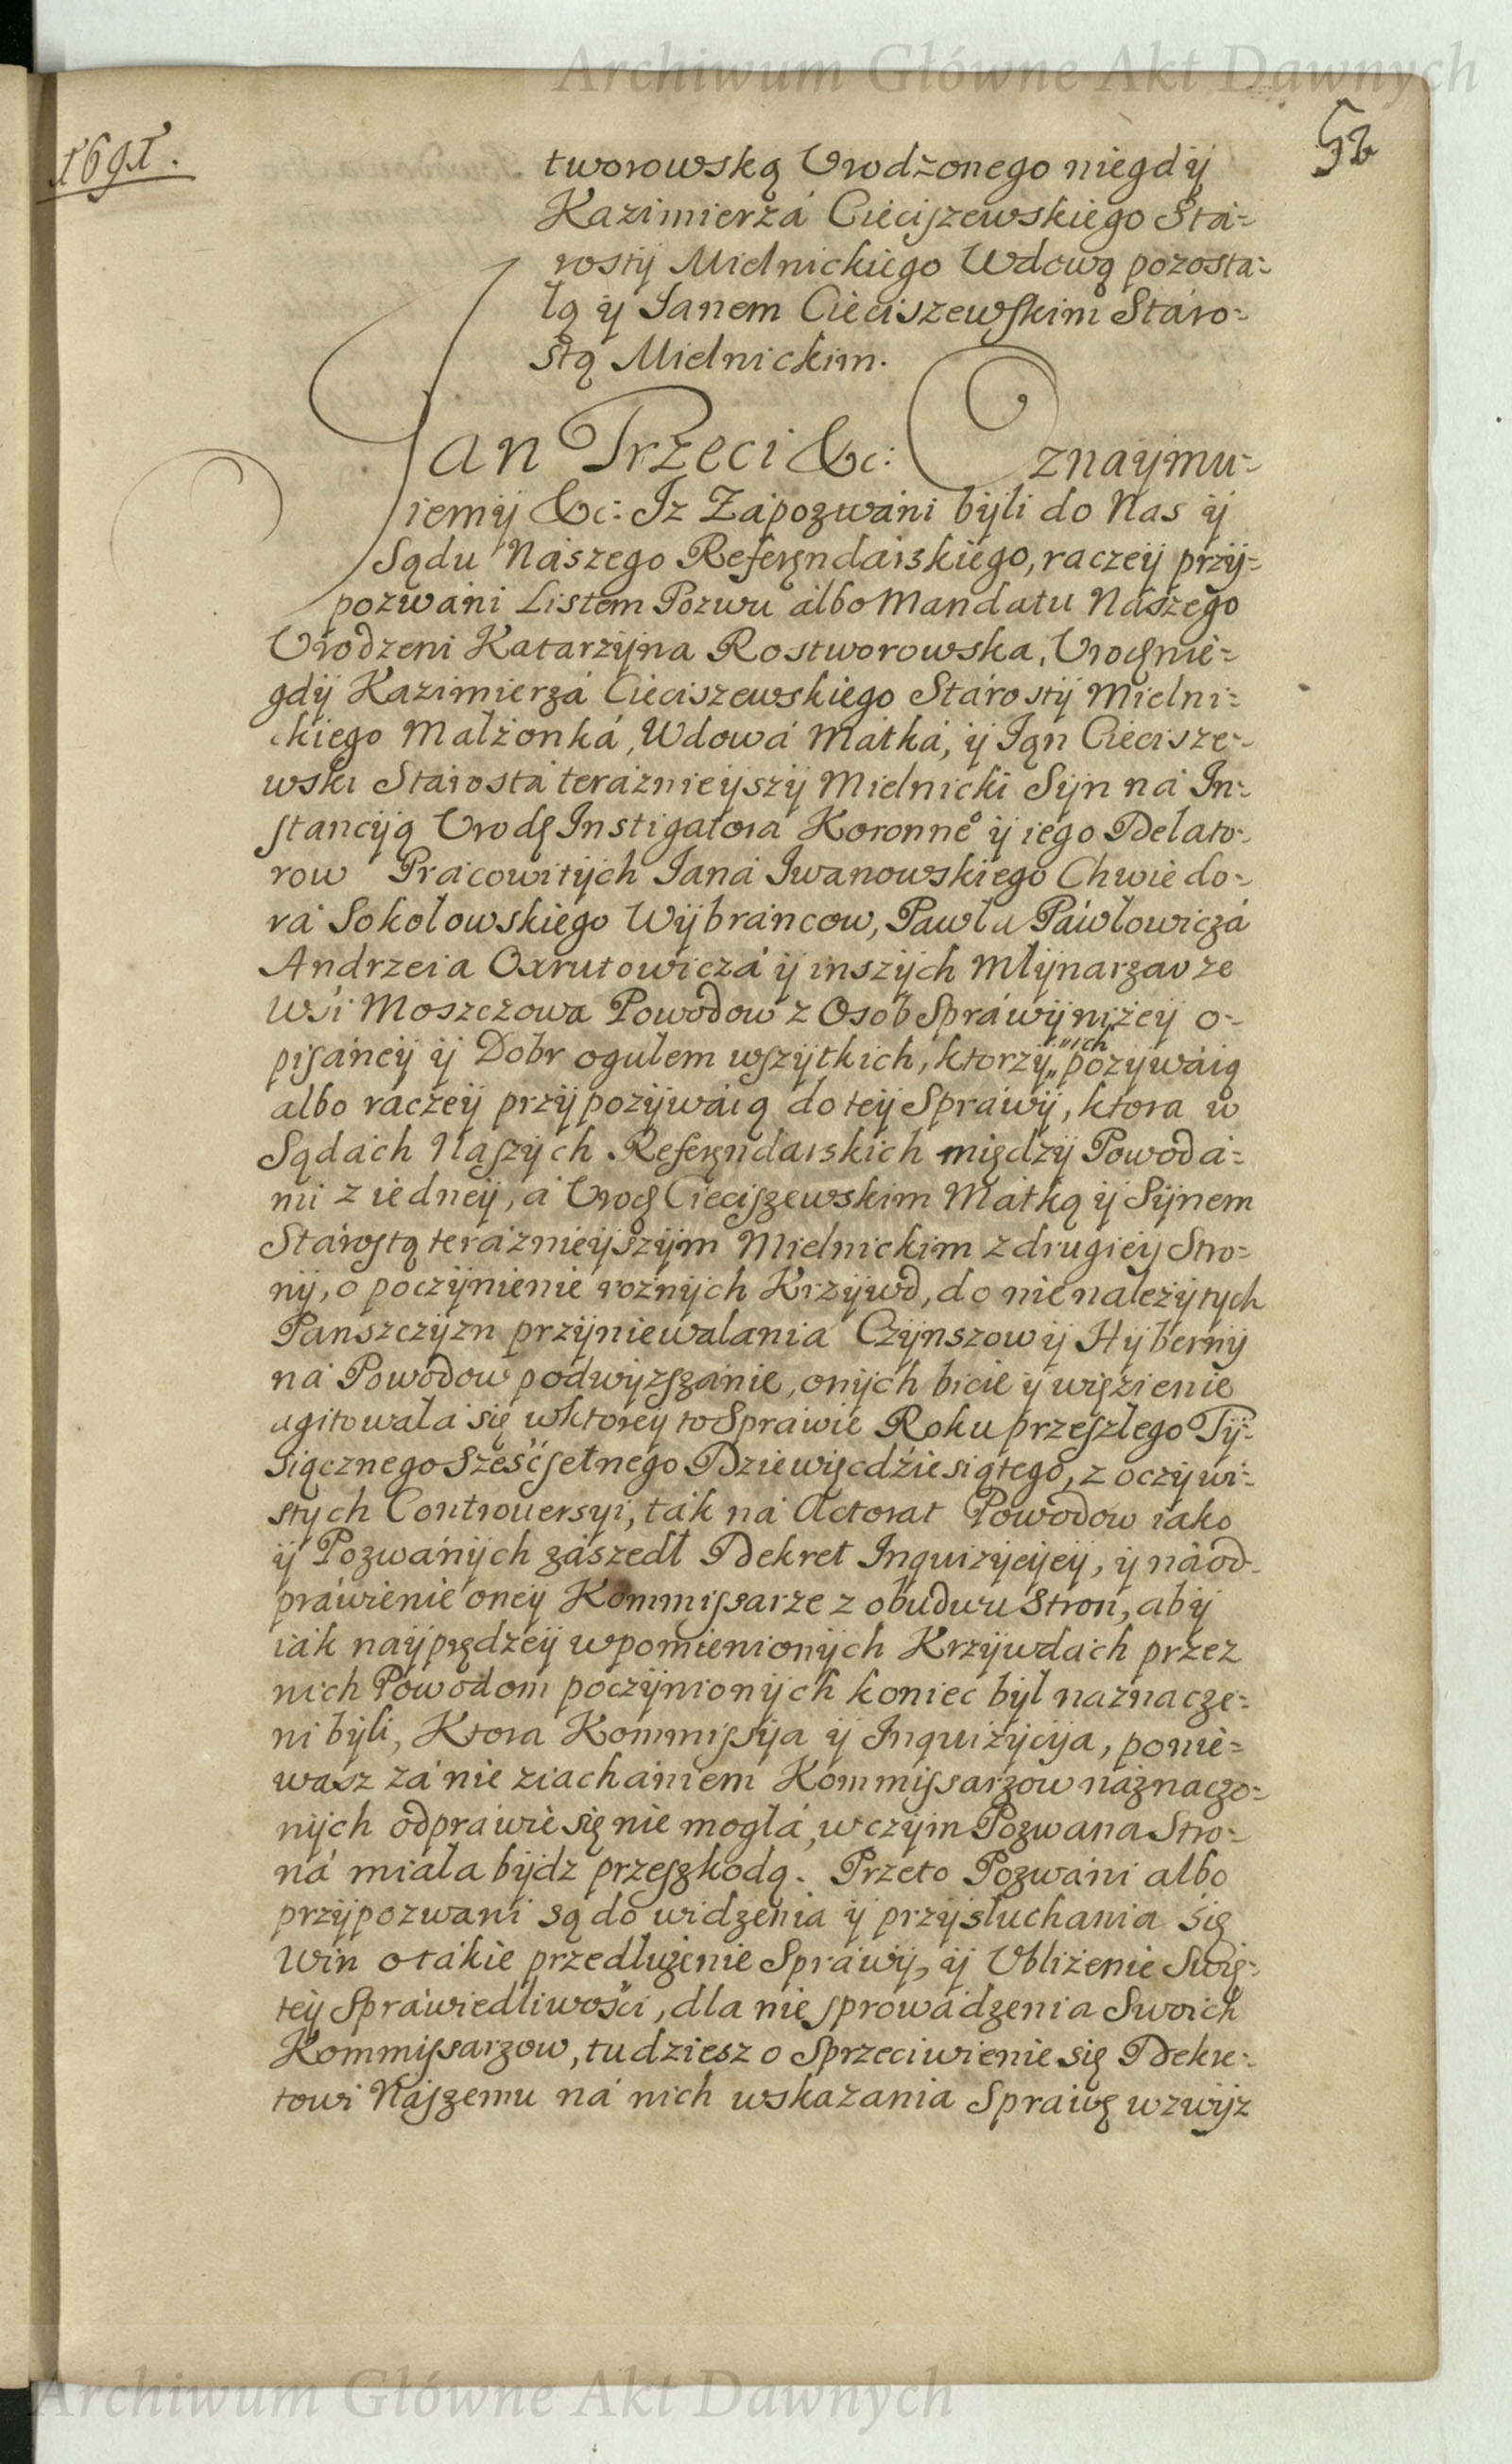 Archiwum Główne Akt Dawnych
1691.
52
tworowską Urodzonego niegdÿ
Kazimierzá Cieciszewskiego Stá=
rostÿ Mielnickiego Wdową pozosta=
łą ÿ Janem Cieciszewskim Stáro=
stą Mielnickim.
Jan Trzeci &c: Oznaÿmu=
iemÿ &c: Iz Zápozwáni bÿli do Nas ÿ
Sądu Nászego Referęndárskiego, raczeÿ przÿ=
pozwáni Listem Pozwu álbo Mandatu Nászego
Urodzeni Katarzÿna Rostworowska, Urodz nie=
gdÿ Kazimierzá Cieciszewskiego Stárostÿ Mielni=
ckiego Małżonká, Wdowá Mátká, ÿ Ján Ciecisze=
wski Stárostá teráznieÿszÿ Mielnicki Sÿn ná In=
stancÿą Urodz Instigatorá Koronne° ÿ iego Delato=
row Prácowitÿch Janá Iwanowskiego Chwiedo=
rá Sokołowskiego Wÿbráncow, Páwłá Páwłowiczá
Andrzeia Oxrutowiczá ÿ inszÿch Młÿnarzav ze
Wsi Moszczowa Powodow z Osob Spráwÿ niżeÿ o=
pisáneÿ ÿ Dobr ogułem wszÿtkich, ktorzÿ „ich„ pozÿwáią
albo ráczeÿ przÿpozÿwáią do teÿ Spráwÿ, ktora w
Sądách Nászÿch Referęndárskich międzÿ Powodá=
mi z iedneÿ, á Urodz Cieciszewskim Mátką ÿ Sÿnem
Stárostą teráznieÿszÿm Mielnickim z drugieÿ Stro=
nÿ, o poczÿnienie roznÿch Krzÿwd, do nienależÿtych
Panszczÿzn przÿniewalania Czÿnszow ÿ Hÿbernÿ
ná Powodow podwÿzszánie, onÿch bicie ÿ więzienie
agitowała się w ktoreÿ to Spráwie Roku przeszłego Tÿ=
siącznego Sześćsetnego Dziewięćdziesiątego, z oczÿwi=
stych Controuersyi, ták ná Actorat Powodow iáko
ÿ Pozwánÿch zászedł Dekret Inquizÿcÿeÿ, ÿ náod=
práwienie oneÿ Kommissarze z obudwu Stron, abÿ
iák naÿprędzeÿ wpomienionÿch Krzÿwdách przez
nich Powodom poczÿnionÿch koniec bÿł náznácze=
ni bÿli, Ktora Kommissÿa ÿ Inquizÿcÿa, ponie=
wasz zá nie ziachániem Kommissarzow náznáczo=
nÿch odpráwić się nie mogłá, w czÿm Pozwana Stro=
ná miáła bÿdz przeszkodą. Przeto Pozwáni álbo
przÿpozwani są do widzenia ÿ przÿsłuchania się
Win o tákie przedłużenie Spráwÿ, ÿ Ubliżenie Swię=
teÿ Spráwiedliwości, dla niesprowádzenia Swoich
Kommissarzow, tudziesz o Sprzeciwienie się Dekre=
towi Nászemu ná nich wskazania Spráwę wzwÿz
Archiwum Główne Akt Dawnych